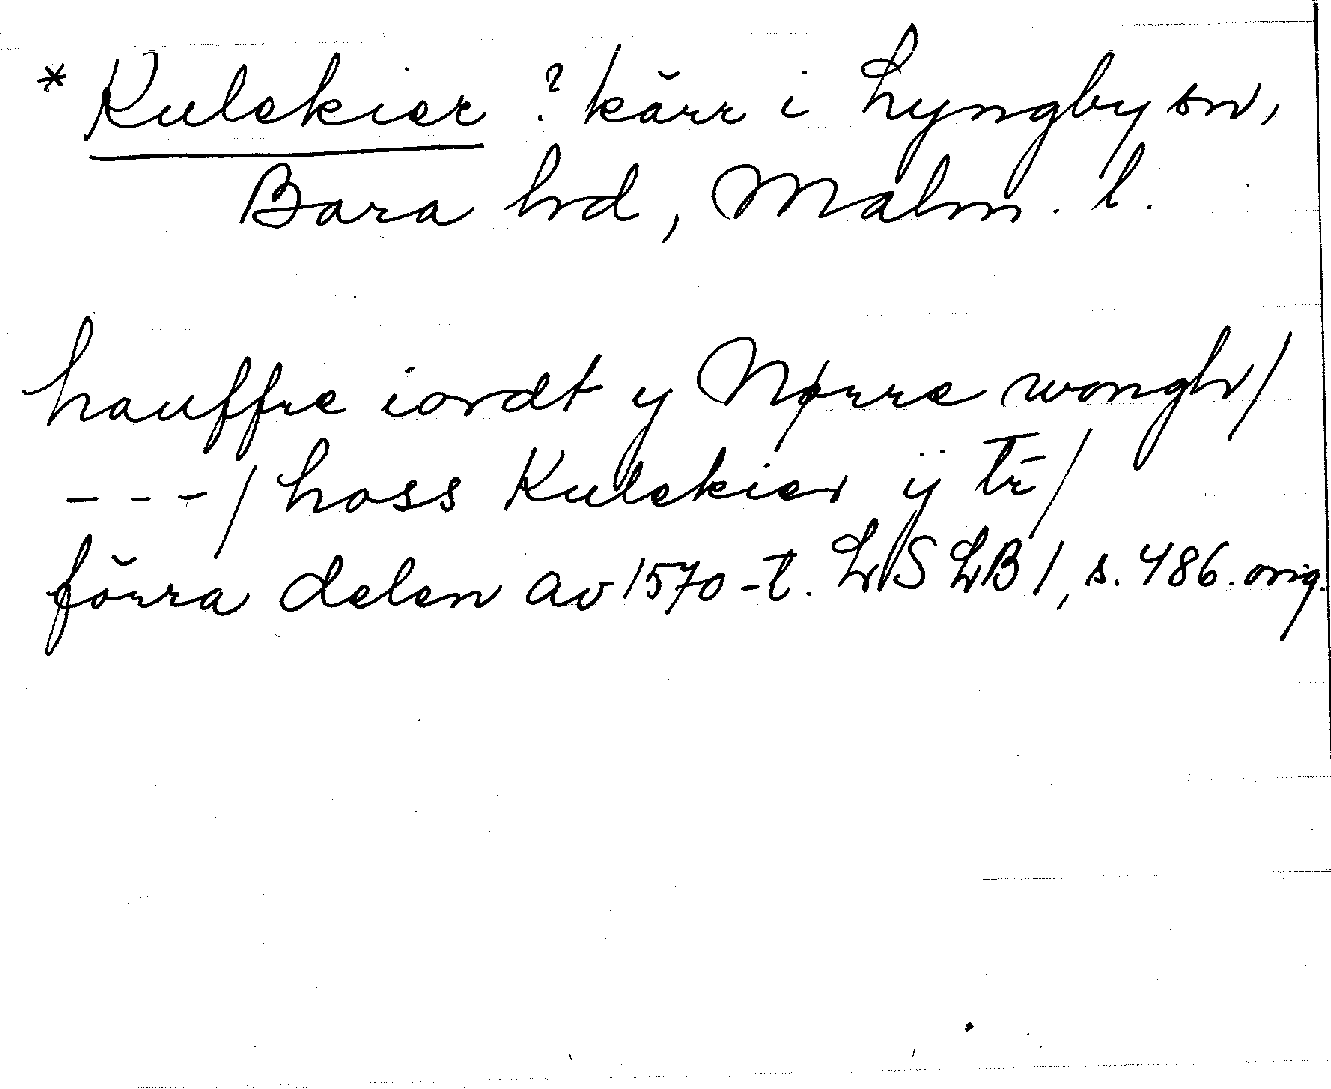 * Kulekier ? kärr i Lyngby sn,
Bara hd, Malm. l.
hauffre iordt y Nørre wongh/
---/ hoss Kulekier ÿ tr̄/
förra delen av 1570-t. LSLB 1, s. 486. orig.